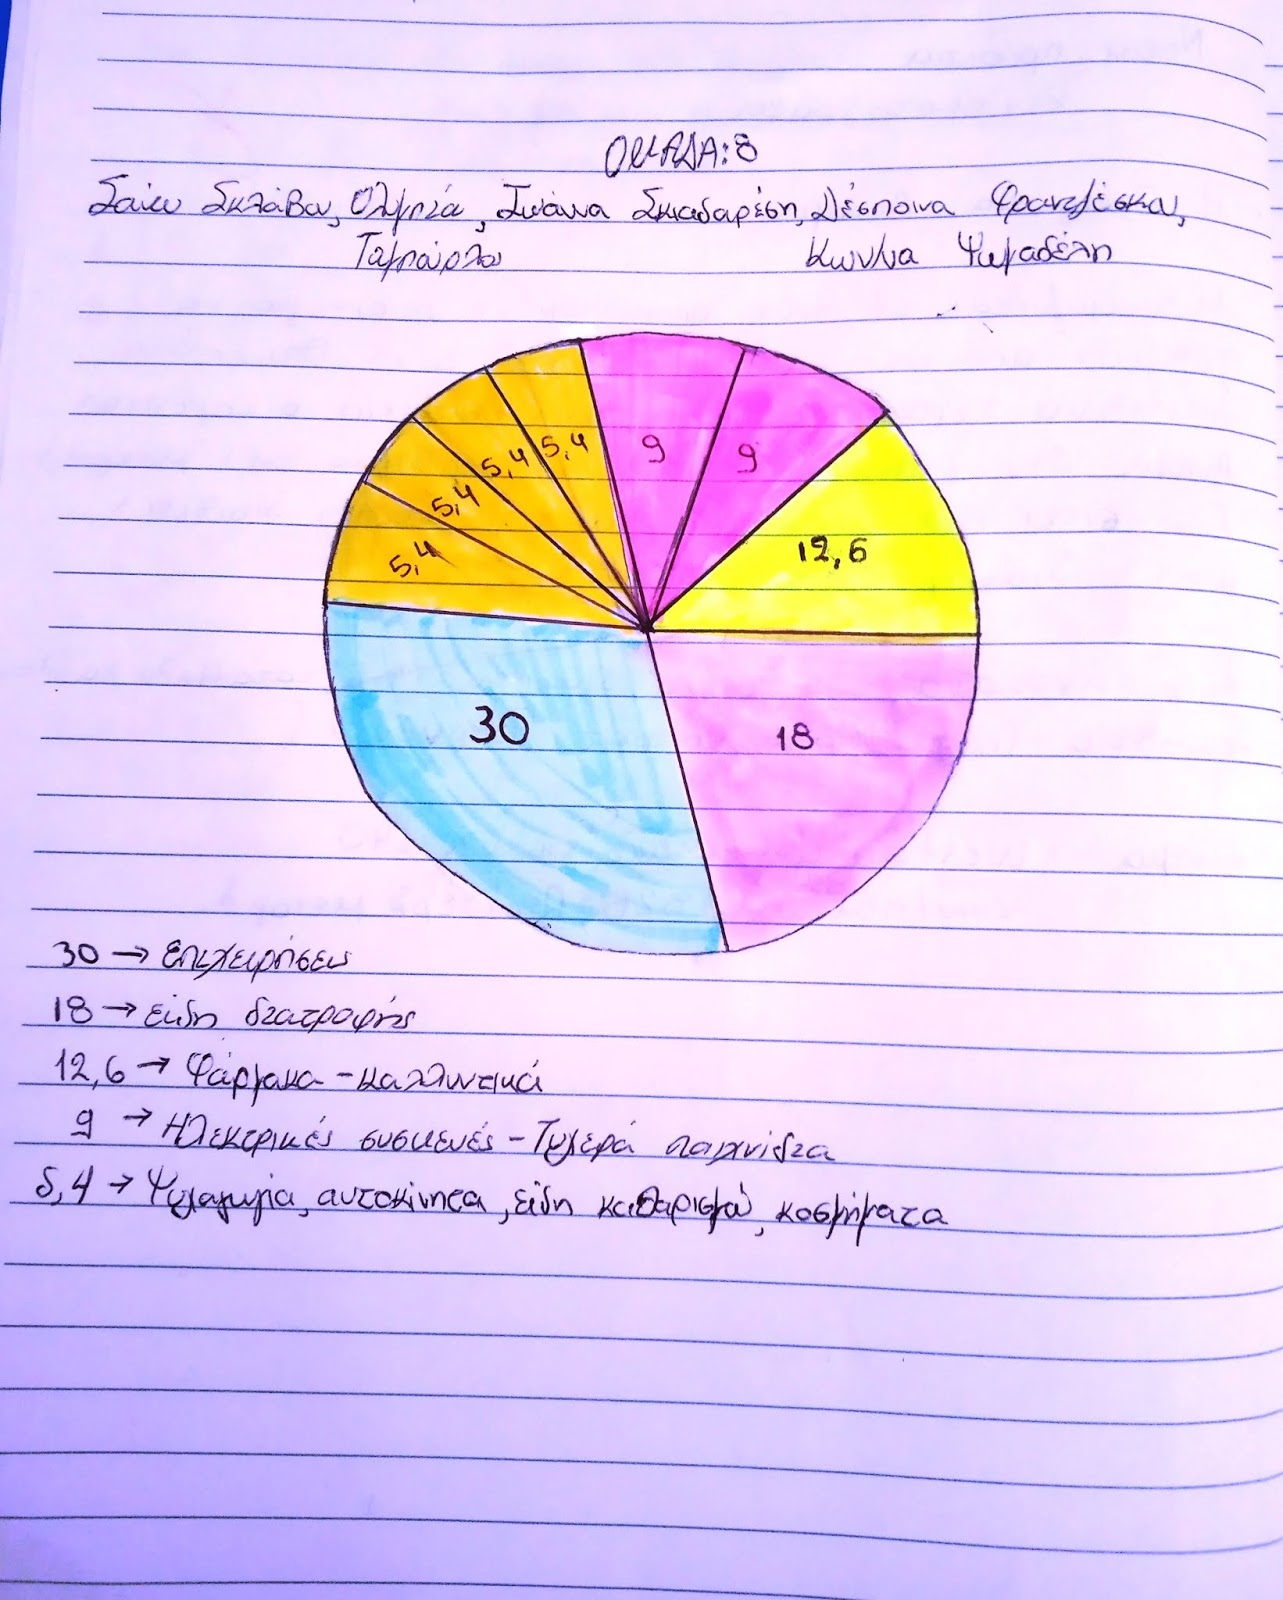 ΟΜΑΔΑ: 8
Σκλάβου, Ολυμπία, Ιωάννα Σκιαδαρέση, Δέσποινα Φραντζέσκου,
Ψωμαδέλη
5,4
5,4
5,4
5,4
9
9
12,6
30
18
30 → Επιχειρήσεις
18 → είδη διατροφής
12,6 → Φάρμακα - καλλυντικά
9 → Ηλεκτρικές συσκευές - Τυχερά παιχνίδια
5,4 → Ψυχαγωγία, αυτοκίνητα, είδη καθαρισμού, κοσμήματα